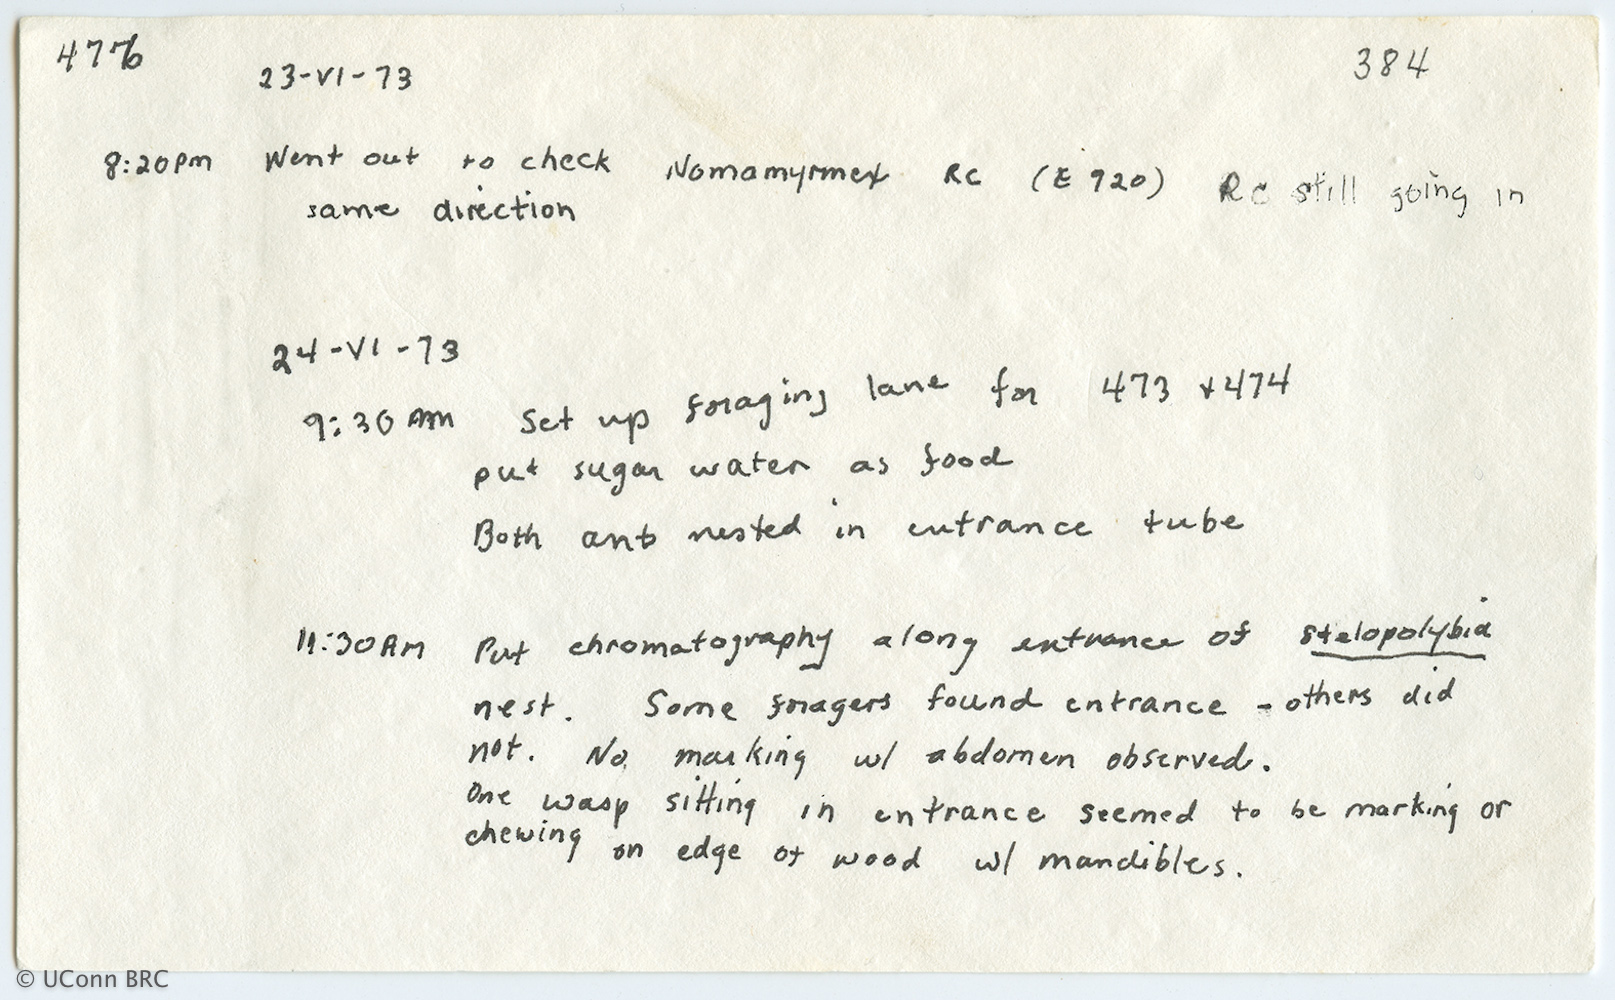 4776
384
23-VI-73
8:20pm Went out to check Nomamyrmex Rc (E 920) Rc still going in
same direction
24-VI-73
9:30 AM Set up foraging lane for 473 + 474
put sugar water as food
Both ants nested in entrance tube
11:30AM Put chromatography along entrance of stelopolybia
nest. Some foragers found entrance - others did
not. No marking w/ abdomen observed.
One wasp sitting in entrance seemed to be marking or
chewing on edge of wood w/ mandibles.
© UConn BRC